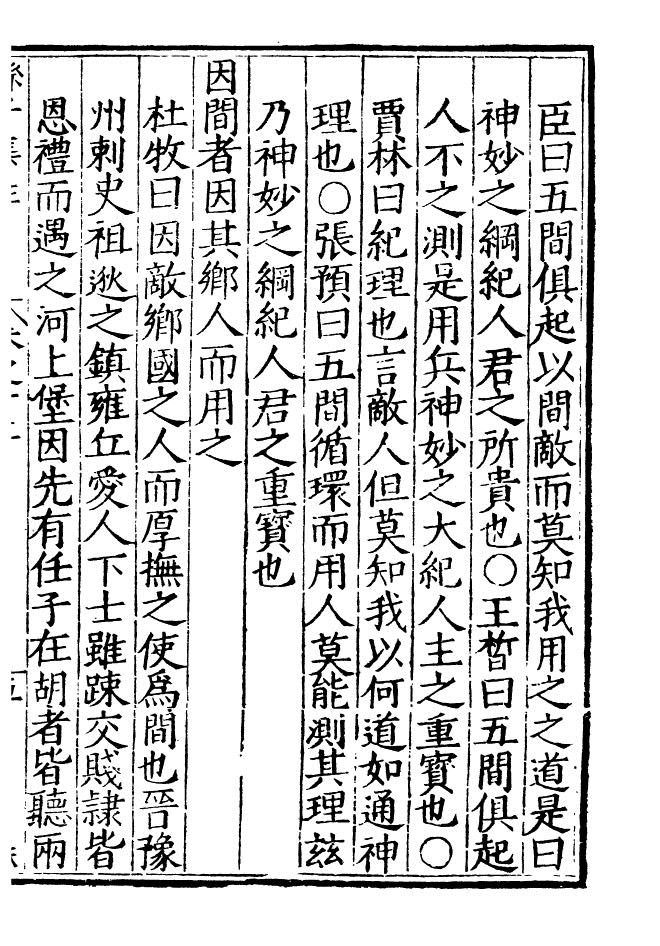 臣曰五間俱起以間敵而莫知我用之之道是曰
神妙之綱紀人君之所貴也〇王晳曰五間俱起
人不之測是用兵神妙之大紀人主之重寶也〇
賈林曰紀理也言敵人但莫知我以何道如通神
理也〇張預曰五間循環而用人莫能測其理茲
乃神妙之綱紀人君之重寶也
因間者因其鄉人而用之
杜牧曰因敵鄉國之人而厚撫之使爲間也晉豫
州刺史祖逖之鎮雍丘愛人下士雖踈交賤隷皆
恩禮而遇之河上堡因先有任子在胡者皆聽兩